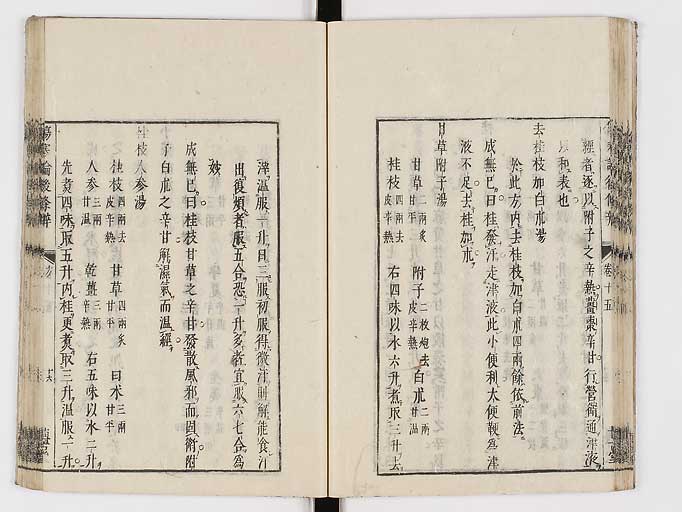 經者逐以附子之辛熱薑棗辛甘行營衛通津液
以和表也
去桂枝加白朮湯
於此方内去桂枝加白朮四兩餘依前法
成無已曰桂發汗走津液此小便利大便鞕為津
液不足去桂加朮
甘草附子湯
甘草二兩炙甘平 附子二枚炮去皮辛熱 白朮二兩甘温
桂枝四兩去皮辛熱 右四味以水六升煮取三升去
滓温服一升日三服初服得微汗則解能食汗
出復煩者服五合恐一升多者宜服六七合為
妙
成無已曰桂枝甘草之辛甘發散風邪而固衛附
子白朮之辛甘解濕氣而温經
桂枝人參湯
桂枝四兩去皮辛熱 甘草四兩炙甘平 白朮三兩甘平
人參三兩甘温 乾薑三兩辛熱 右五味以水九升
先煮四味取五升内桂更煮取三升温服一升
卷十五